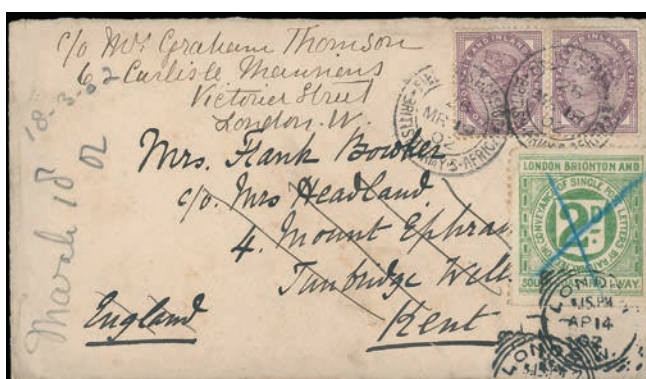 c/o Mrs Graham Thomson
6 Carlisle Mansions
Victoria Street
London. W.
18-3-02
March 18 02
Mrs. Frank Bowker
c/o. Mrs Headland.
4. Mount Ephraim
Tunbridge Wells
Kent
England
LONDON BRIGHTON AND
FOR CONVEYANCE OF SINGLE POST LETTERS BY RAIL
2D.
SOUTH WAY.
LONDON
1.15.PM
AP 14
02
LONDON